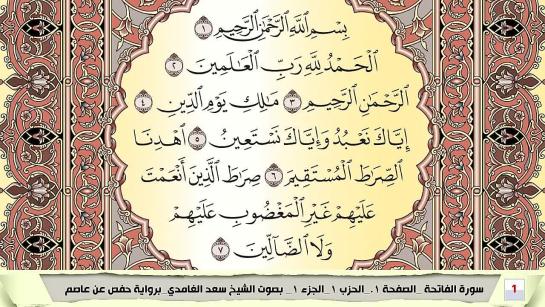 بِسْمِ ٱللَّهِ ٱلرَّحْمَٰنِ ٱلرَّحِيمِ ١
ٱلْحَمْدُ لِلَّهِ رَبِّ ٱلْعَٰلَمِينَ ٢
ٱلرَّحْمَٰنِ ٱلرَّحِيمِ ٣ مَٰلِكِ يَوْمِ ٱلدِّينِ ٤
إِيَّاكَ نَعْبُدُ وَإِيَّاكَ نَسْتَعِينُ ٥ ٱهْدِنَا
ٱلصِّرَٰطَ ٱلْمُسْتَقِيمَ ٦ صِرَٰطَ ٱلَّذِينَ أَنْعَمْتَ
عَلَيْهِمْ غَيْرِ ٱلْمَغْضُوبِ عَلَيْهِمْ
وَلَا ٱلضَّآلِّينَ ٧
1 سورة الفاتحة _الصفحة ١_ الحزب ١_الجزء ١_ بصوت الشيخ سعد الغامدي_برواية حفص عن عاصم